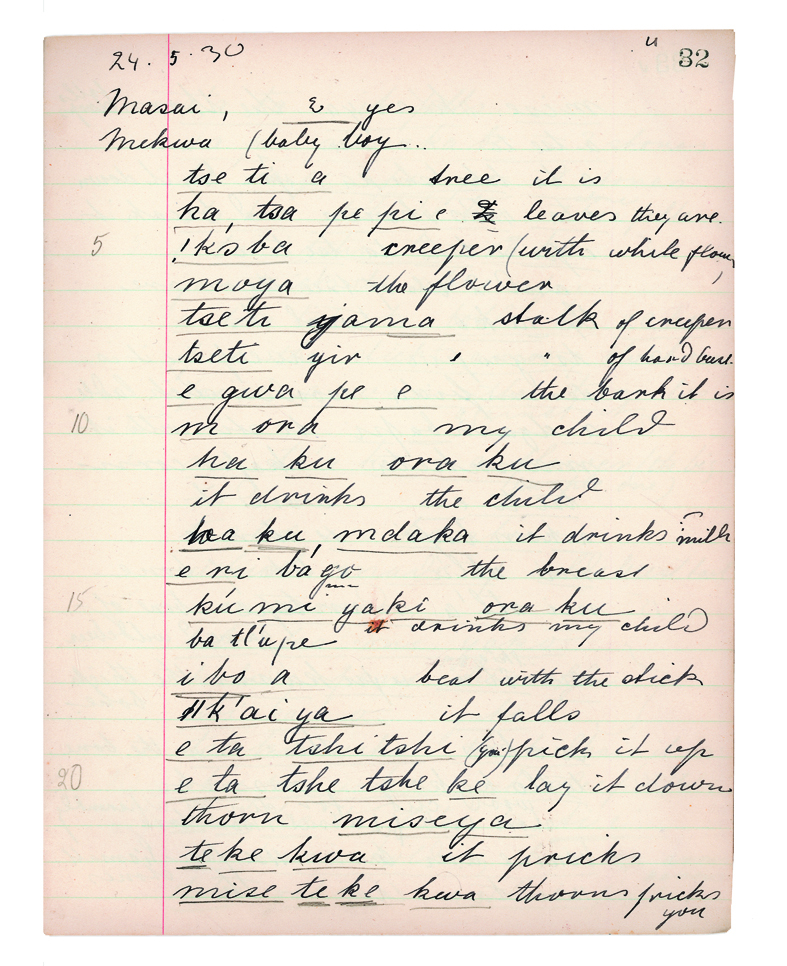 24. 5. 30 " 32
Masai, ɛ yes
Mekwa (baby boy..
tse ti a tree it is
ha, tsa pe pi e leaves they are.
5 !ksba creeper (with while flower
moya the flower
tseti yama stalk of creeper
tseti yir ' " of hard
e gwa pe e the bark it is
10 m ora my child
ha ku ora ku
it drinks the child
ha ku, mdaka it drinks milk
e ri bágo the breast
15 kú mi yaki ora ku
it drinks my child
ba tl'upe
i bo a beat with the stick
ǁk'ai ya it falls
e ta tshi tshi (you) pick it up
20 e ta tshe tshe ke lay it down
thorn miseya
teke kwa it pricks
mise te ke kwa thorns pricks
you